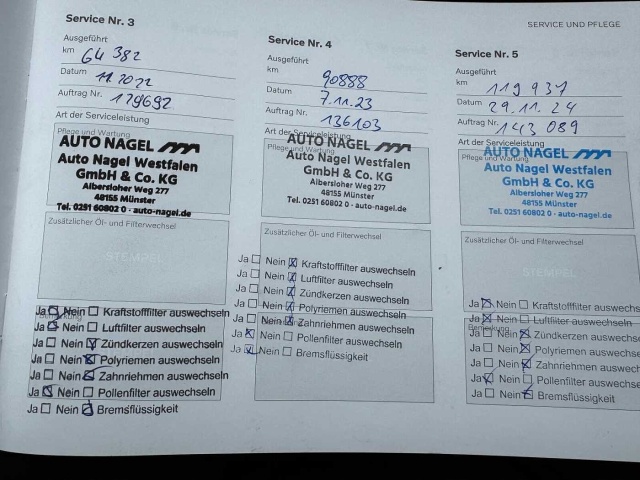 SERVICE UND PFLEGE
Service Nr. 3
Ausgeführt
km 64 382
Datum 11.2022
Auftrag Nr. 129692
Art der Serviceleistung
Pflege und Wartung
AUTO NAGEL
Auto Nagel Westfalen
GmbH & Co. KG
Albersloher Weg 277
48155 Münster
Tel. 0251 60802 0 · auto-nagel.de
Zusätzlicher Öl- und Filterwechsel
STEMPEL
Bemerkung
Ja Nein Kraftstofffilter auswechseln
Ja Nein Luftfilter auswechseln
Ja Nein Zündkerzen auswechseln
Ja Nein Polyriemen auswechseln
Ja Nein Zahnriemen auswechseln
Ja Nein Pollenfilter auswechseln
Ja Nein Bremsflüssigkeit
Service Nr. 4
Ausgeführt
km 90888
Datum 7.11.23
Auftrag Nr. 136103
Art der Serviceleistung
Pflege und Wartung
AUTO NAGEL
Auto Nagel Westfalen
GmbH & Co. KG
Albersloher Weg 277
48155 Münster
Tel. 0251 60802 0 · auto-nagel.de
Zusätzlicher Öl- und Filterwechsel
Ja Nein Kraftstofffilter auswechseln
Ja Nein Luftfilter auswechseln
Ja Nein Zündkerzen auswechseln
Ja Nein Polyriemen auswechseln
Ja Nein Zahnriemen auswechseln
Ja Nein Pollenfilter auswechseln
Ja Nein Bremsflüssigkeit
Service Nr. 5
Ausgeführt
km 119 937
Datum 29.11.24
Auftrag Nr. 143 089
Art der Serviceleistung
Pflege und Wartung
AUTO NAGEL
Auto Nagel Westfalen
GmbH & Co. KG
Albersloher Weg 277
48155 Münster
Tel. 0251 60802 0 · auto-nagel.de
Zusätzlicher Öl- und Filterwechsel
STEMPEL
Ja Nein Kraftstofffilter auswechseln
Ja Nein Luftfilter auswechseln
Bemerkung
Ja Nein Zündkerzen auswechseln
Ja Nein Polyriemen auswechseln
Ja Nein Zahnriemen auswechseln
Ja Nein Pollenfilter auswechseln
Ja Nein Bremsflüssigkeit